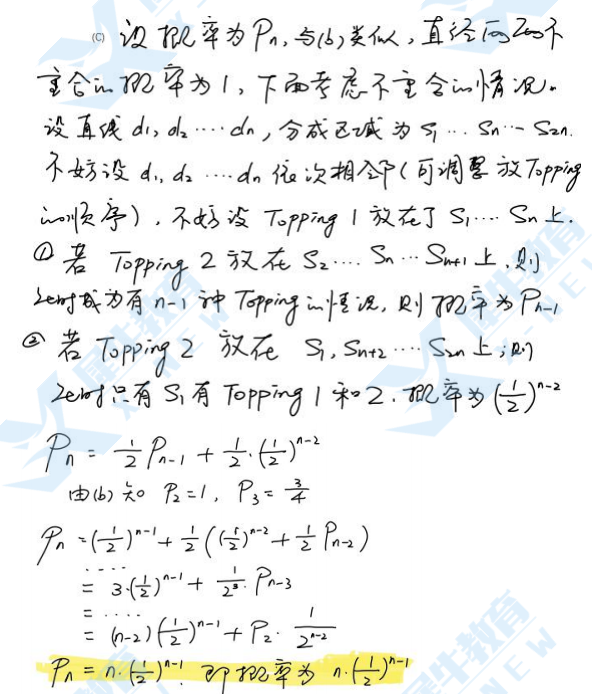 (C) 设概率为Pn,与(b)类似,直径两两不
重合的概率为1,下面考虑不重合的情况。
设直线d1,d2……dn,分成区域为S1…Sn…S2n.
不妨设d1,d2……dn依次相邻(可调整放Topping
的顺序),不妨设Topping 1放在了S1……Sn上.
① 若 Topping 2 放在 S2……Sn…Sn+1上,则
Zebf成为有n-1种Topping的情况,则概率为Pn-1
② 若 Topping 2 放在 S1,Sn+2……S2n上;则
Zebf只有S1有Topping 1和2.概率为(1/2)^{n-2}
Pn = 1/2 Pn-1 + 1/2·(1/2)^{n-2}
由(b)知 P2=1, P3=3/4
Pn =(1/2)^{n-1}+1/2((1/2)^{n-2}+1/2 Pn-2)
....
= 3·(1/2)^{n-1}+ 1/2^3·Pn-3
= ....
= (n-2)(1/2)^{n-1}+P2· 1/2^{n-2}
Pn = n·(1/2)^{n-1}. 即概率为 n·(1/2)^{n-1}
犀牛教育
X-NEW